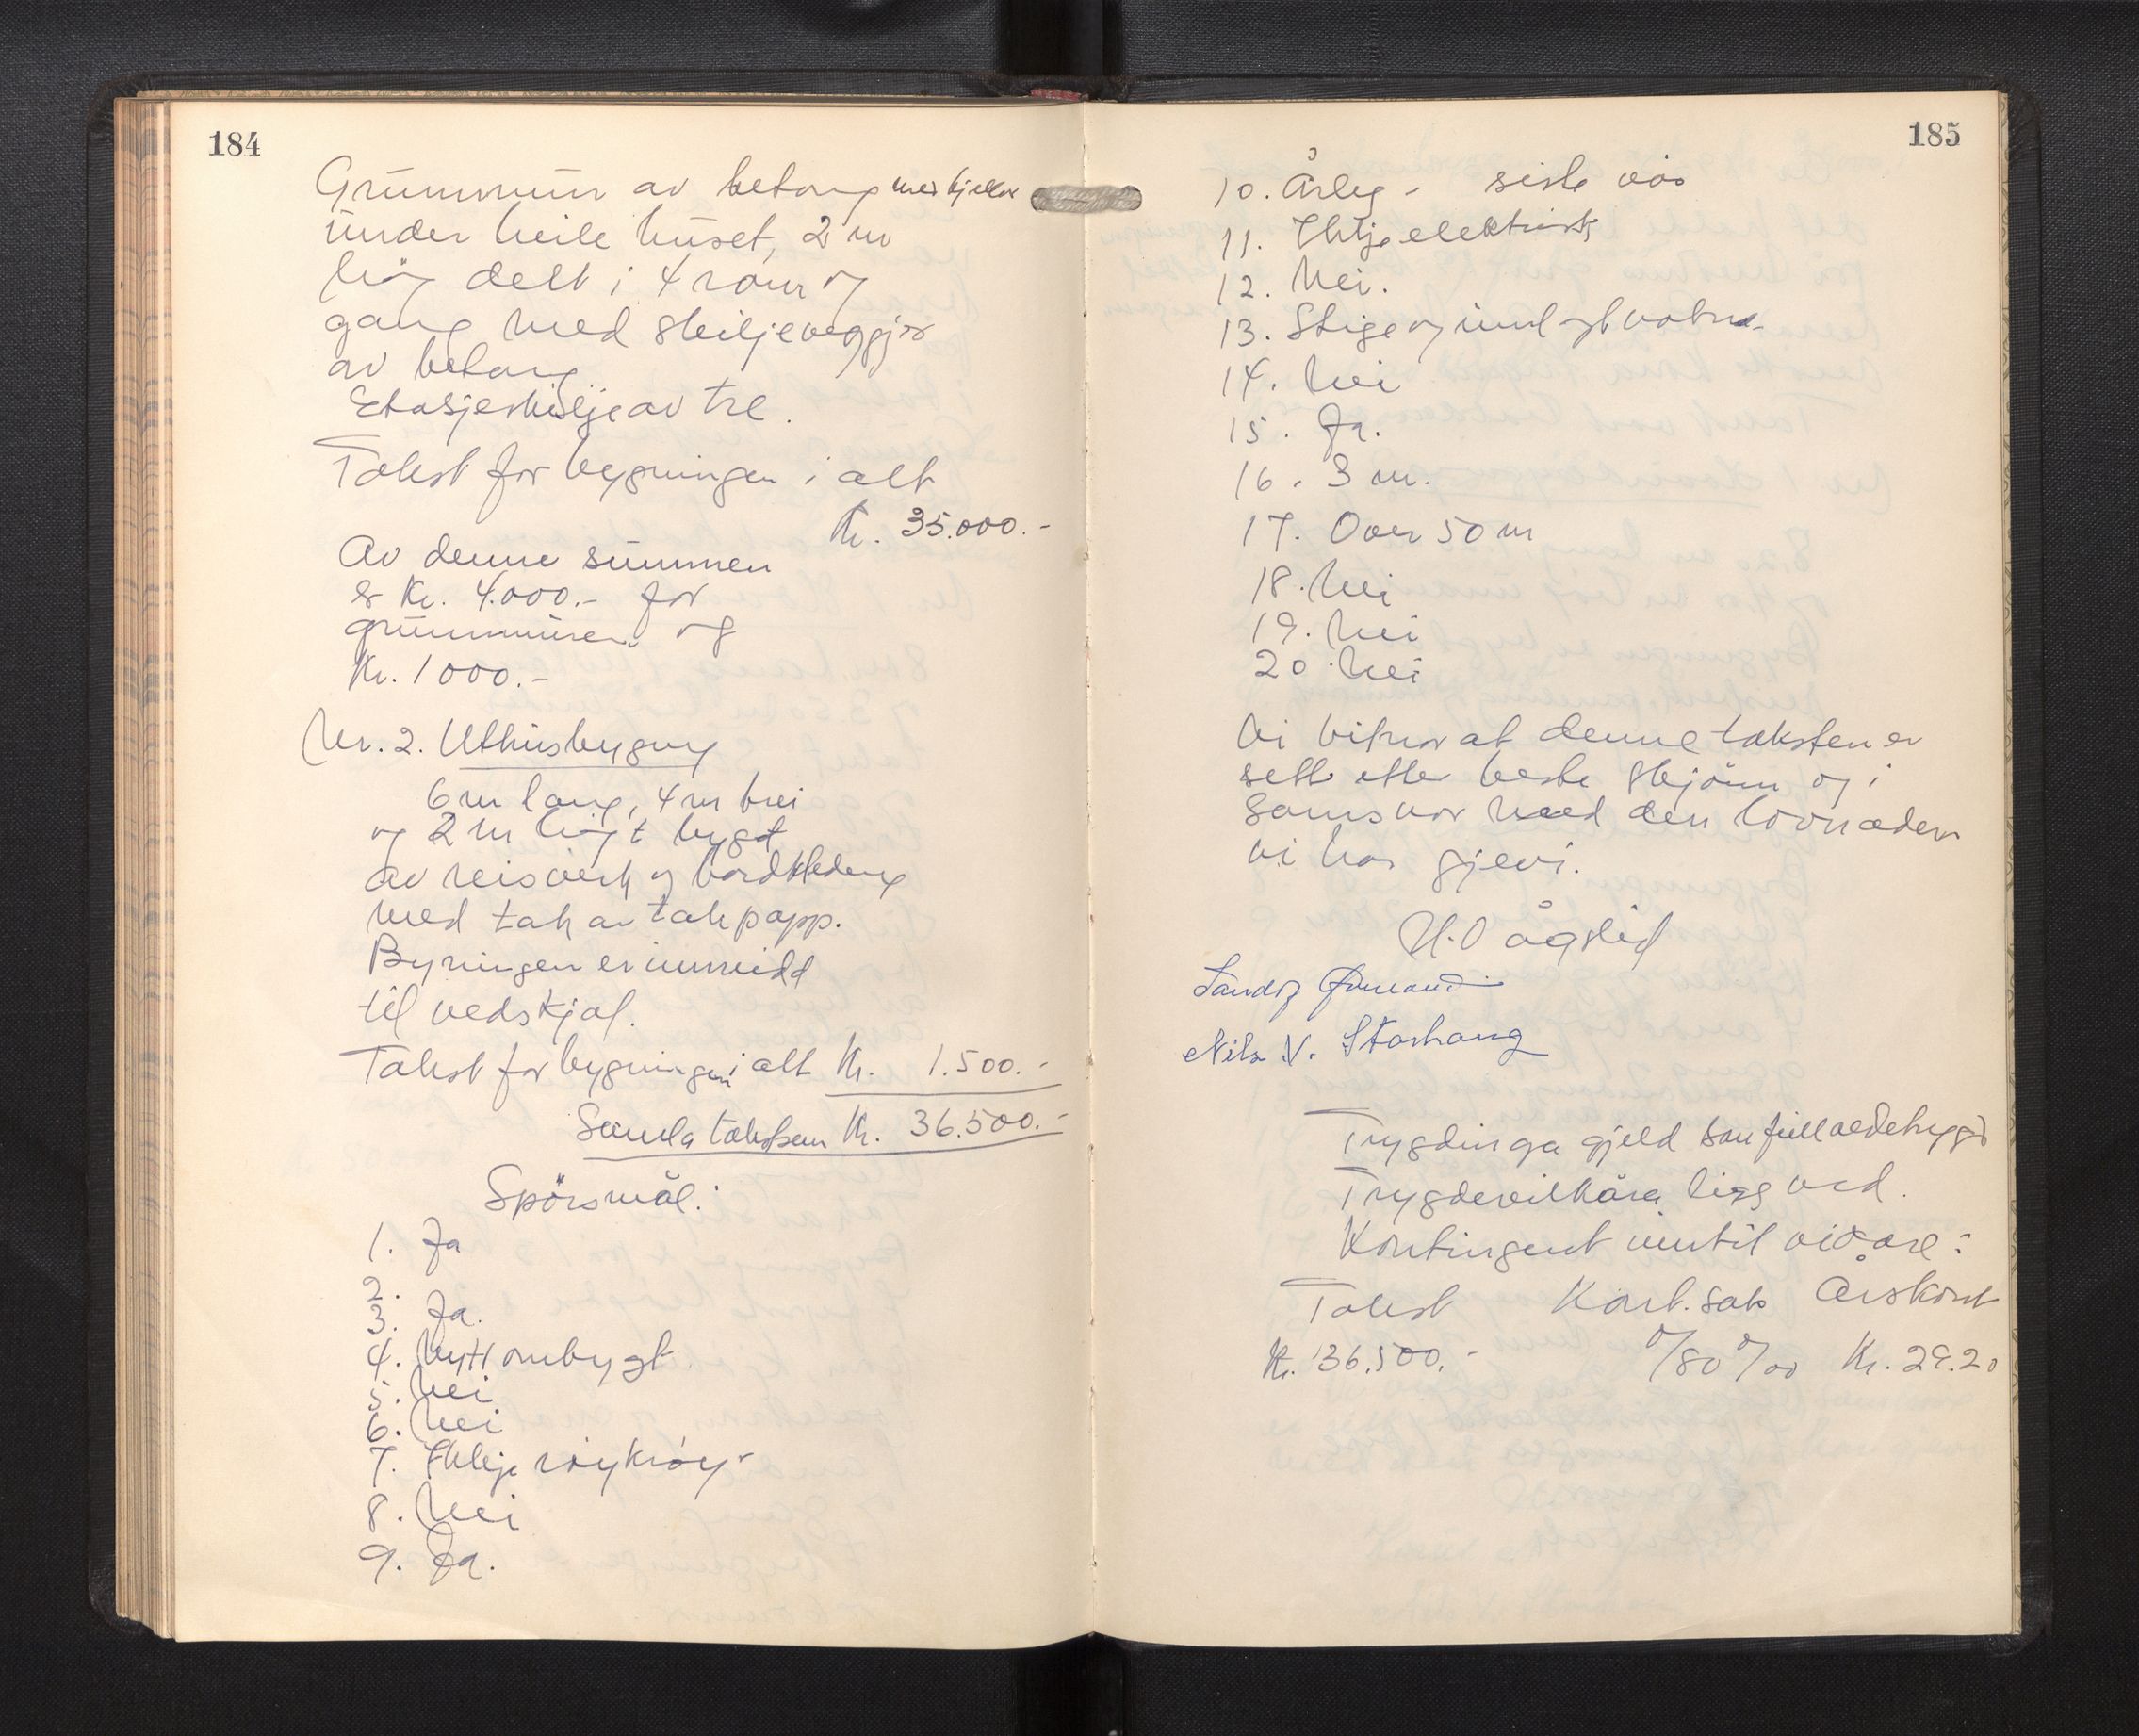 184
Grunnmur av betong med kjellar
under heile huset, 2 m
høg delt i 4 rom og
gang med skiljeveggjer
av betong
Etasjeskilje av tre.
Takst for bygningen i alt
Kr. 35.000.-
Av denne summen
er Kr. 4.000.- for
grunnmuren og
Kr. 1000.-
Nr. 2. Uthusbygning
6 m lang, 4 m brei
og 2 m høgt bygt
av reisverk og bordkledning
med tak av takpapp.
Byningen er innreidd
til vedskjol.
Takst for bygningen i alt Kr. 1.500.-
Samla takstsum Kr. 36.500.-
Spörsmål:
1. Ja
2.
3. Ja.
4. Nytt ombygt
5. Nei
6. Nei
7. Ikkje røykrøyr
8. Nei
9. Ja.
185
10. Årleg - siste vår
11. Ikkje elektrisk
12. Nei.
13. Stige og innlagt vatn
14. Nei
15. Ja.
16. 3 m.
17. Over 50 m
18. Nei
19. Nei
20. Nei
Vi vitnar at denne taksten er
sett etter beste skjönn og i
samsvar med den lovnaden
vi har gjevi.
H.O Ågslid
Sandof
Nils V. Storhaug
Trygdinga gjeld som fullverdetrygd
Trygdevilkåra ligg ved.
Kontingent inntil vidare:
Takst Kont.sats Årskont
Kr. 36.500.- 0/80 0/00 Kr. 29.20